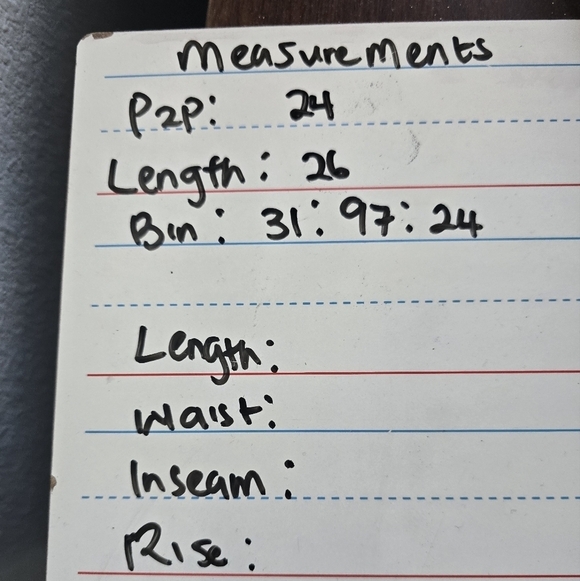 Measurements
P2P: 24
Length: 26
Bin: 31:97:24
Length:
Waist:
Inseam:
Rise: